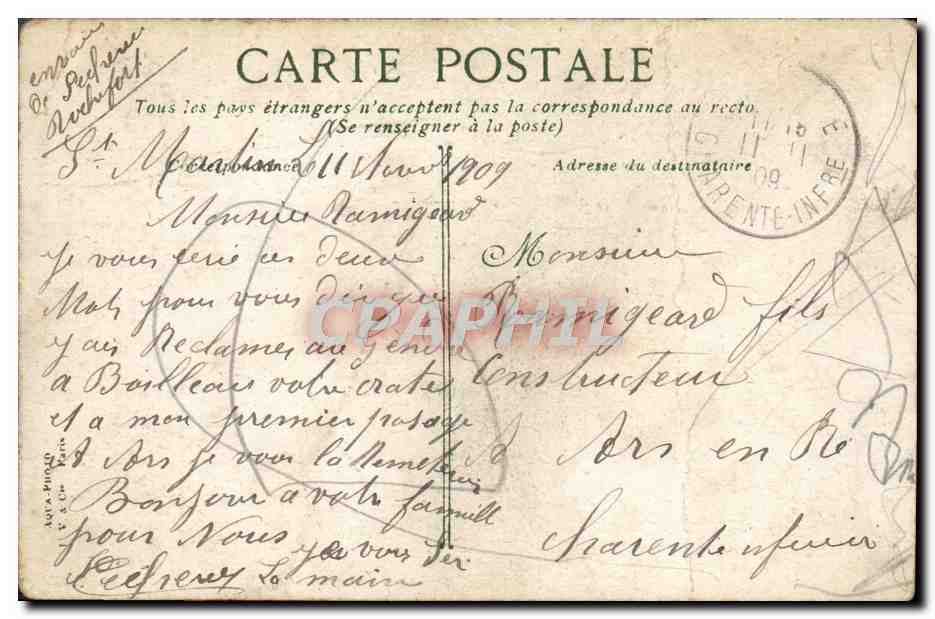 envoie
de Pechereu
Rochefort
CARTE POSTALE
Tous les pays étrangers n'acceptent pas la correspondance au recto.
(Se renseigner à la poste)
Correspondance
Adresse du destinataire
St Martin 11 Novb 1909
Monsieur Ramigeard
je vous écrie ces deux
Mots pour vous dire que
j'ais Reclamer au gendre
a Boilleau votre crate
et a mon premier pasage
A Ars je vous la Remeterai
Bonjour a votre famille
pour Nous
je vous Ser
La main
Monsieur
Ramigeard fils
Constructeur
A Ars en Ré
Charente inferieur
09
ARENTE-INFRE
AQUA-PHOTO
V & Cie Paris
CPAPHIL